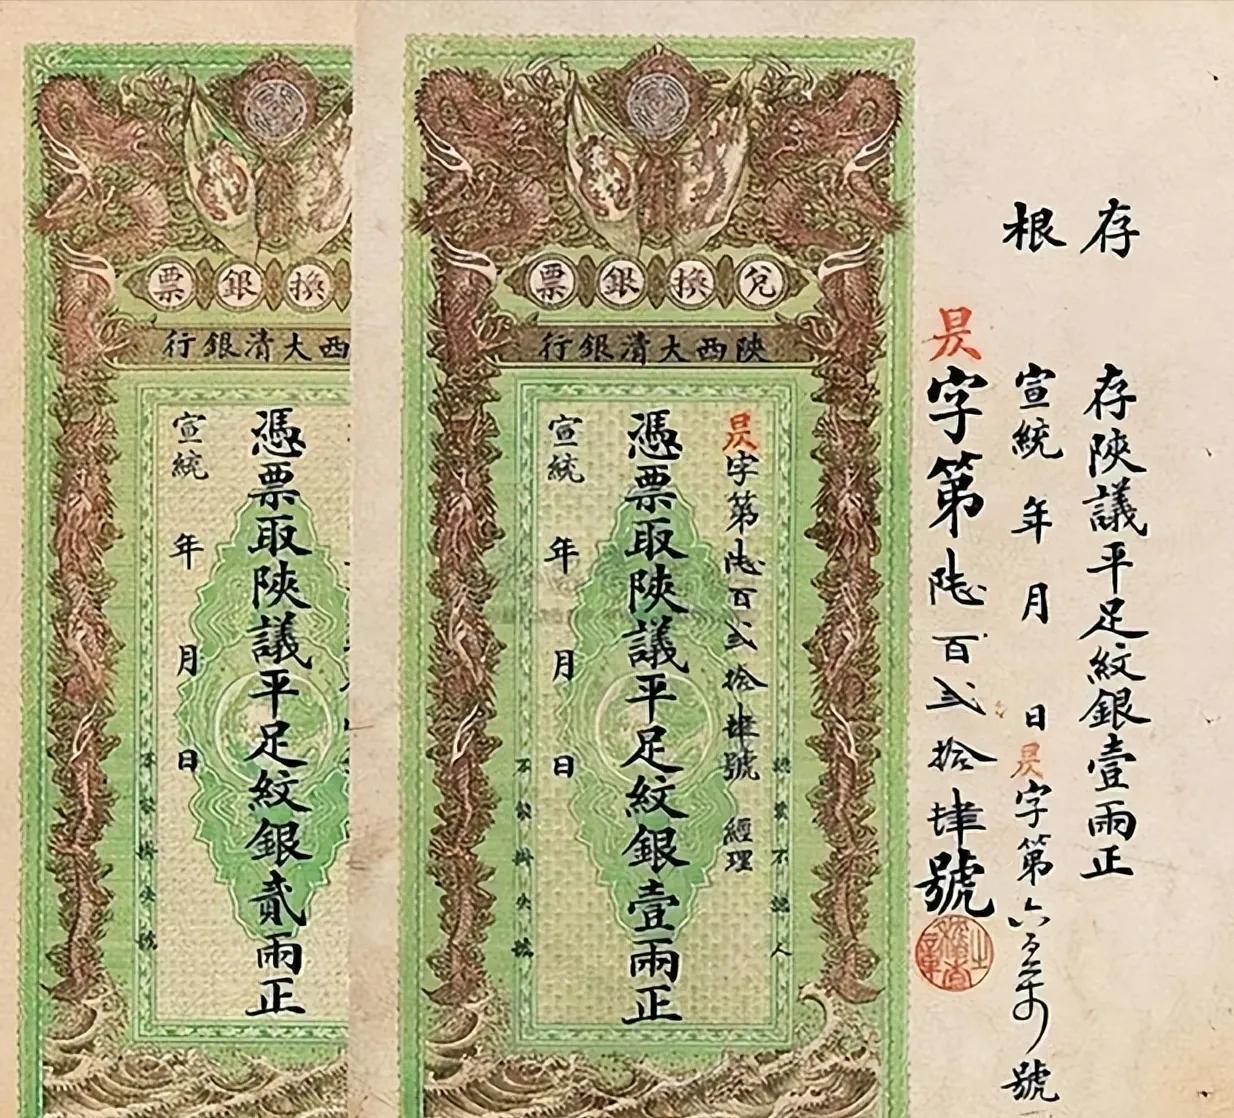 存根
存陝議平足紋銀壹兩正
宣統 年 月 日 昃字第六 號
昃字第陸百弍拾肆號
兌換銀票
陝西大清銀行
認票不認人
昃字第陸百弍拾肆號 經理
憑票取陝議平足紋銀壹兩正
宣統 年 月 日
換銀票
西大清銀行
憑票取陝議平足紋銀貳兩正
宣統 年 月 日